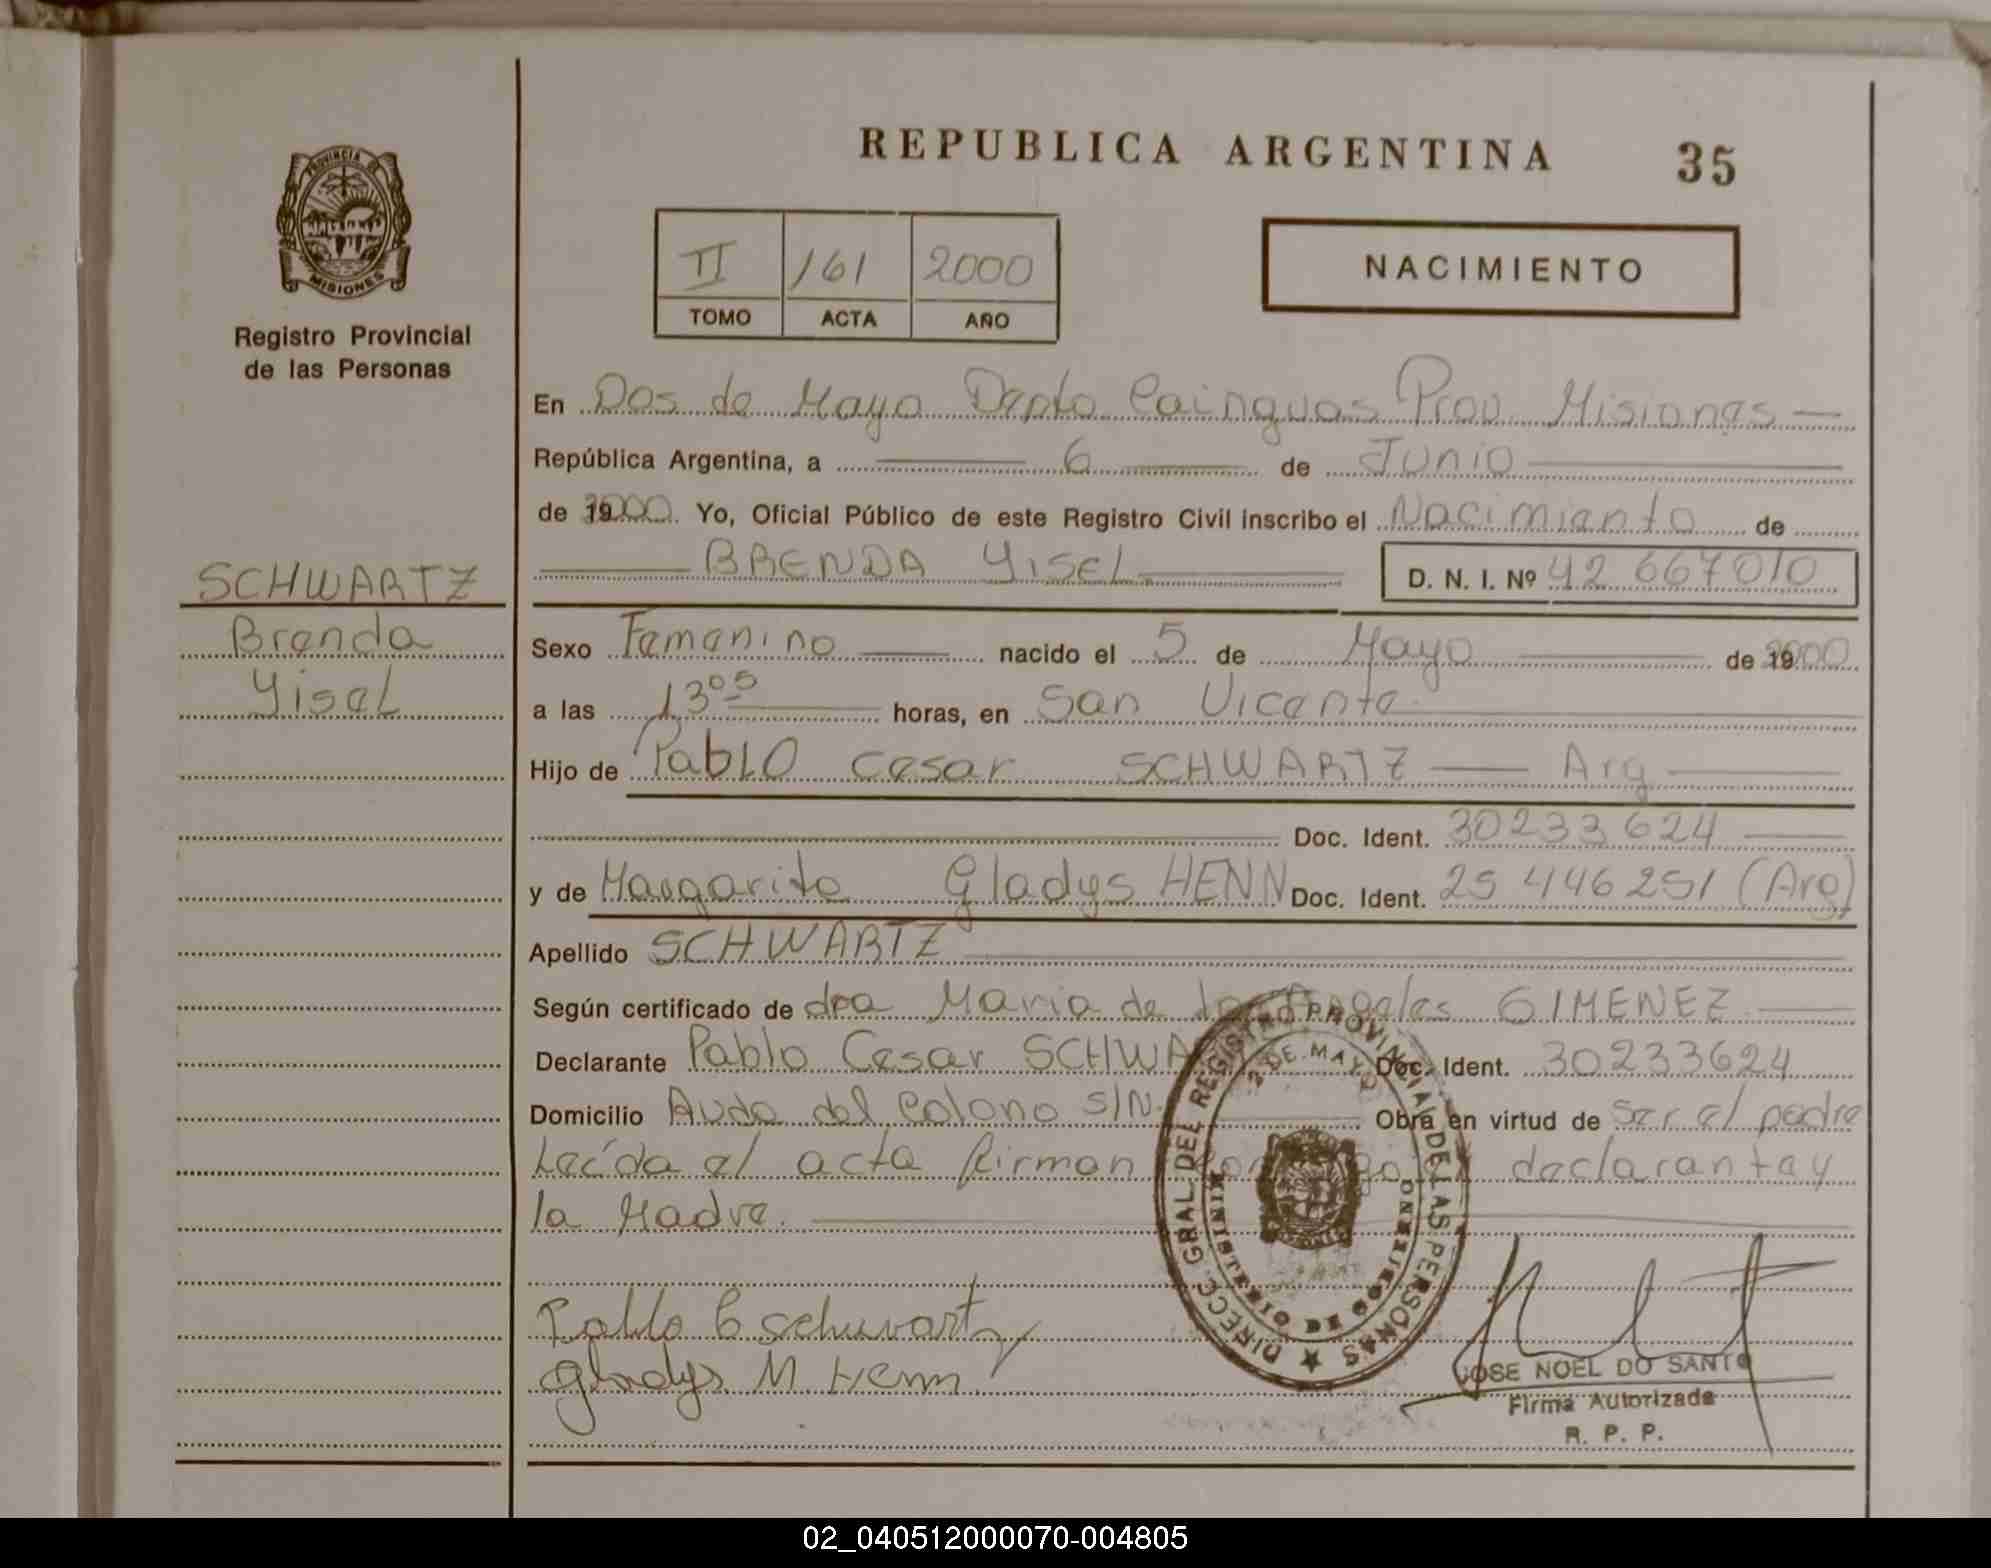 REPUBLICA ARGENTINA 35
PROVINCIA DE
MISIONES
Registro Provincial
de las Personas
II 161 2000
TOMO ACTA AÑO
NACIMIENTO
En Dos de Mayo Depto Cainguas Prov. Misiones —
República Argentina, a — 6 — de Junio —
de 192000 Yo, Oficial Público de este Registro Civil inscribo el Nacimiento de
— BRENDA YISEL — D. N. I. Nº 42 667010
SCHWARTZ
Brenda
Yisel
Sexo Femenino — nacido el 5 de Mayo — de 192000
a las 13 05 — horas, en San Vicente —
Hijo de Pablo Cesar SCHWARTZ — Arg —
Doc. Ident. 30233624 —
y de Margarita Gladys HENN Doc. Ident. 25 446251 (Arg)
Apellido SCHWARTZ —
Según certificado de dra Maria de los Angeles GIMENEZ —
Declarante Pablo Cesar SCHWA Doc. Ident. 30233624
Domicilio Avda del Colono S/N. Obra en virtud de ser el padre
Leída el acta firman conmigo el declarante y
la Madre. —
DIRECC. GRAL. DEL REGISTRO PROVINCIAL DE LAS PERSONAS
2 DE MAYO
MINISTERIO DE GOBIERNO
Pablo C Schwartz
Gladys M. Henn
JOSE NOEL DO SANTO
Firma Autorizada
R. P. P.
02_040512000070-004805